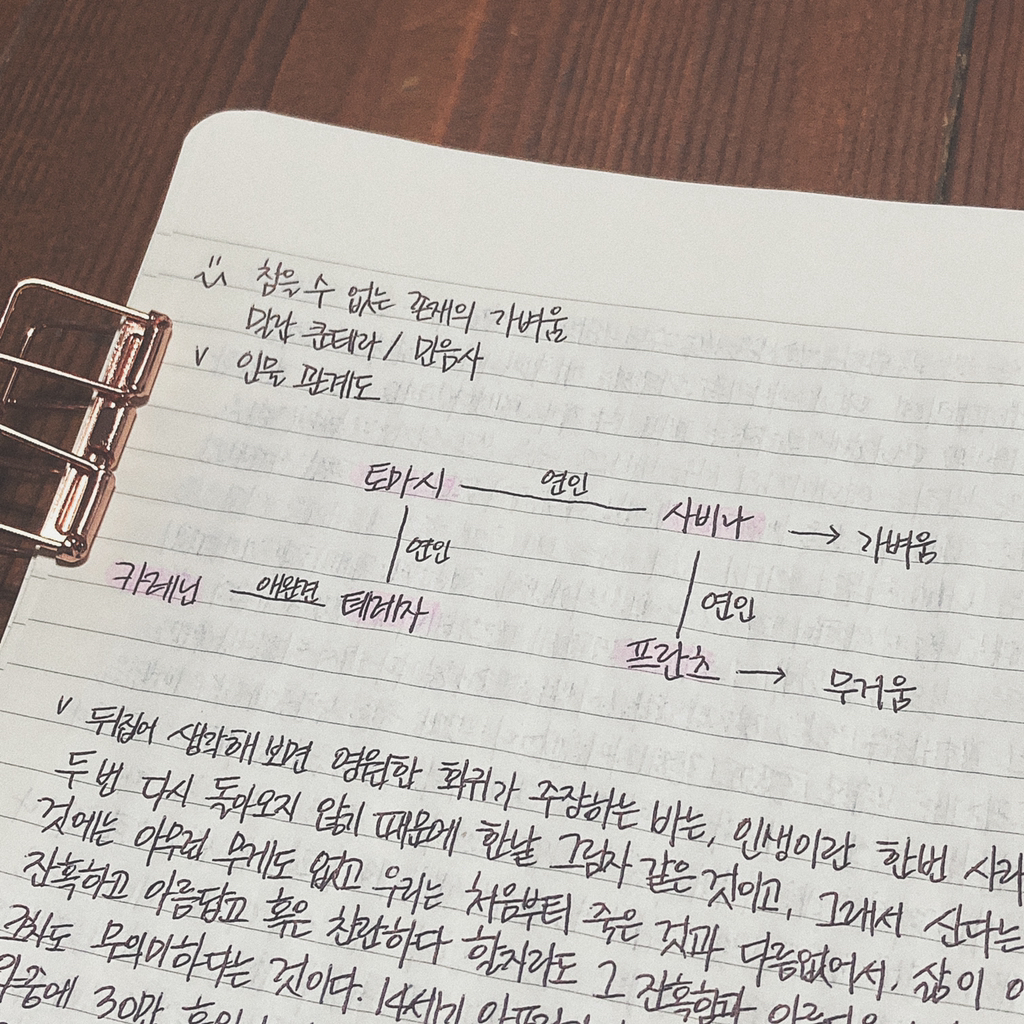 참을 수 없는 존재의 가벼움
밀란 쿤데라 / 민음사
v 인물 관계도
토마시 연인 사비나 → 가벼움
연인
카레닌 애완견 테레자
연인
프란츠 → 무거움
v 뒤집어 생각해 보면 영원한 회귀가 주장하는 바는, 인생이란 한번 사라
두 번 다시 돌아오지 않기 때문에 한낱 그림자 같은 것이고, 그래서 산다는
것에는 아무런 무게도 없고 우리는 처음부터 죽은 것과 다름없어서, 삶이 아
잔혹하고 아름답고 혹은 찬란하다 할지라도 그 잔혹함과
무의미하다는 것이다. 14세기
와중에 30만